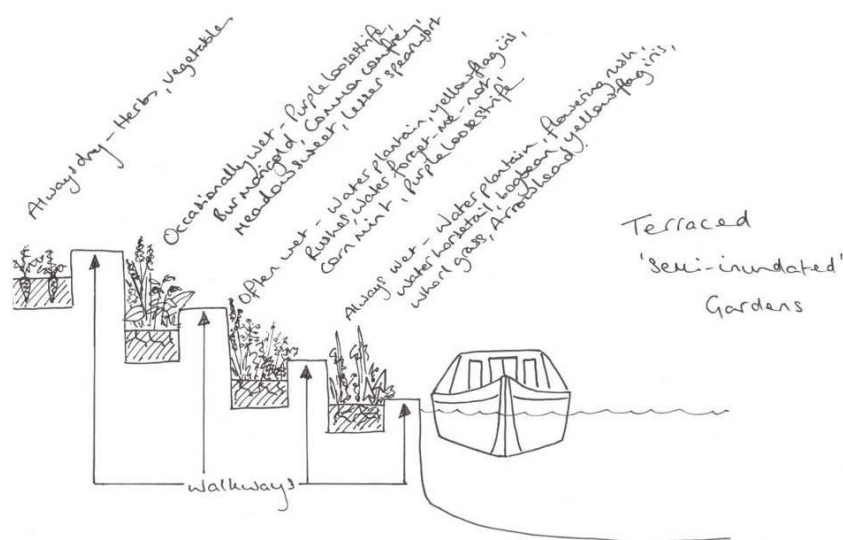 Always dry - Herbs, vegetables
Occasionally wet - Purple loosestrife,
Bur marigold, Common comfrey,
Meadowsweet, Lesser spearwort
Often wet - Water plantain, yellow flag iris,
Rushes, Water forget-me-not,
Corn mint, Purple loosestrife
Always wet - Water plantain, flowering rush,
Water horsetail, bogbean, yellow flag iris,
Whorl grass, Arrowhead.
Terraced
'Semi-inundated'
Gardens
Walkways